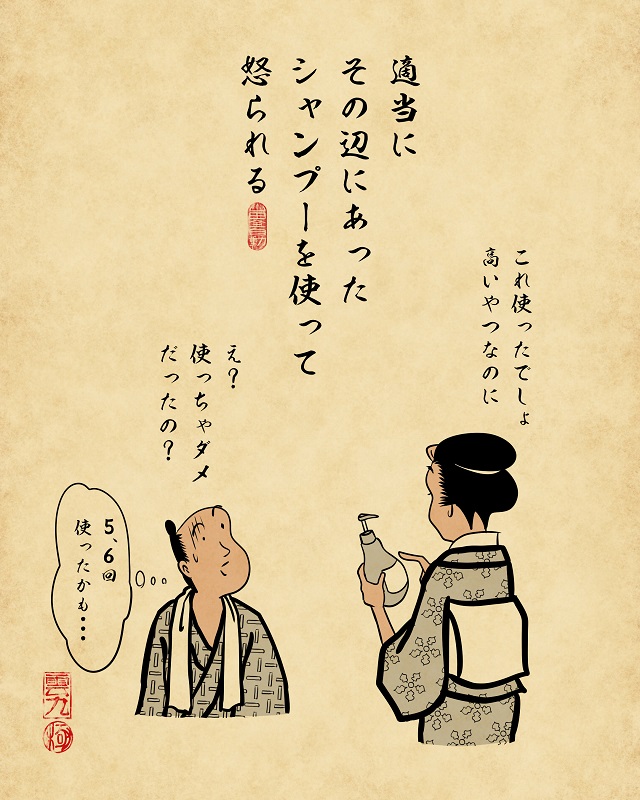 適当に
その辺にあった
シャンプーを使って
怒られる
これ使ったでしょ
高いやつなのに
え？
使っちゃダメ
だったの？
5、6回
使ったかも・・・